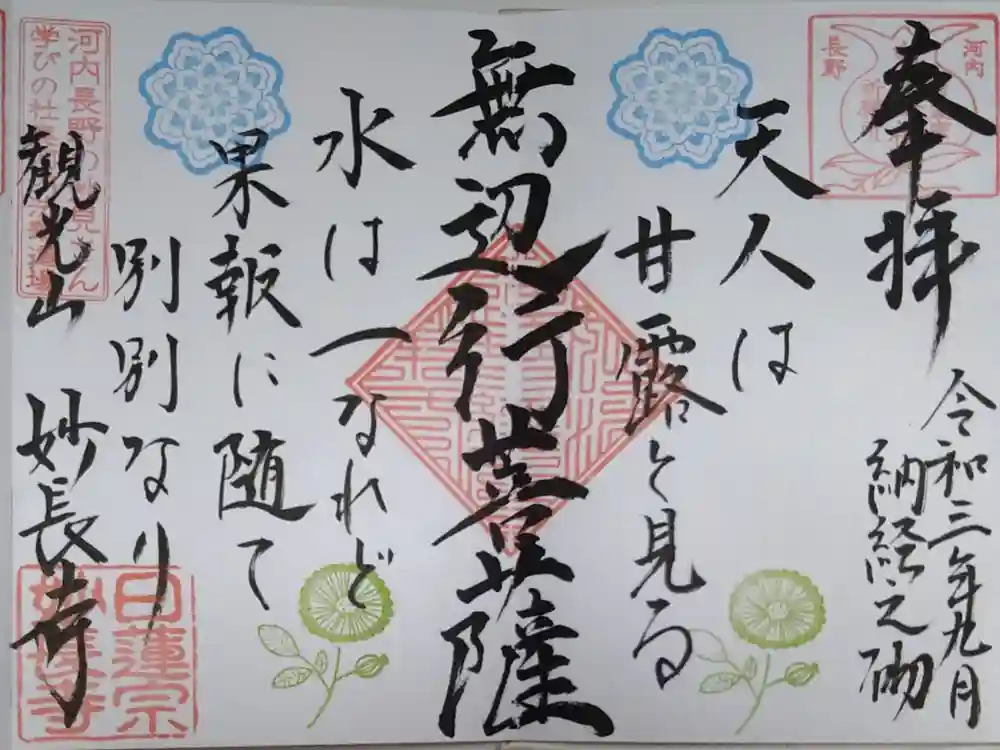 奉拝
令和三年九月
納経之砌
河内
長野
天人は
甘露と見る
無辺行菩薩
水は一なれど
果報に随て
別別なり
観光山 妙長寺
河内長野の
学びの社
日蓮宗
妙長寺